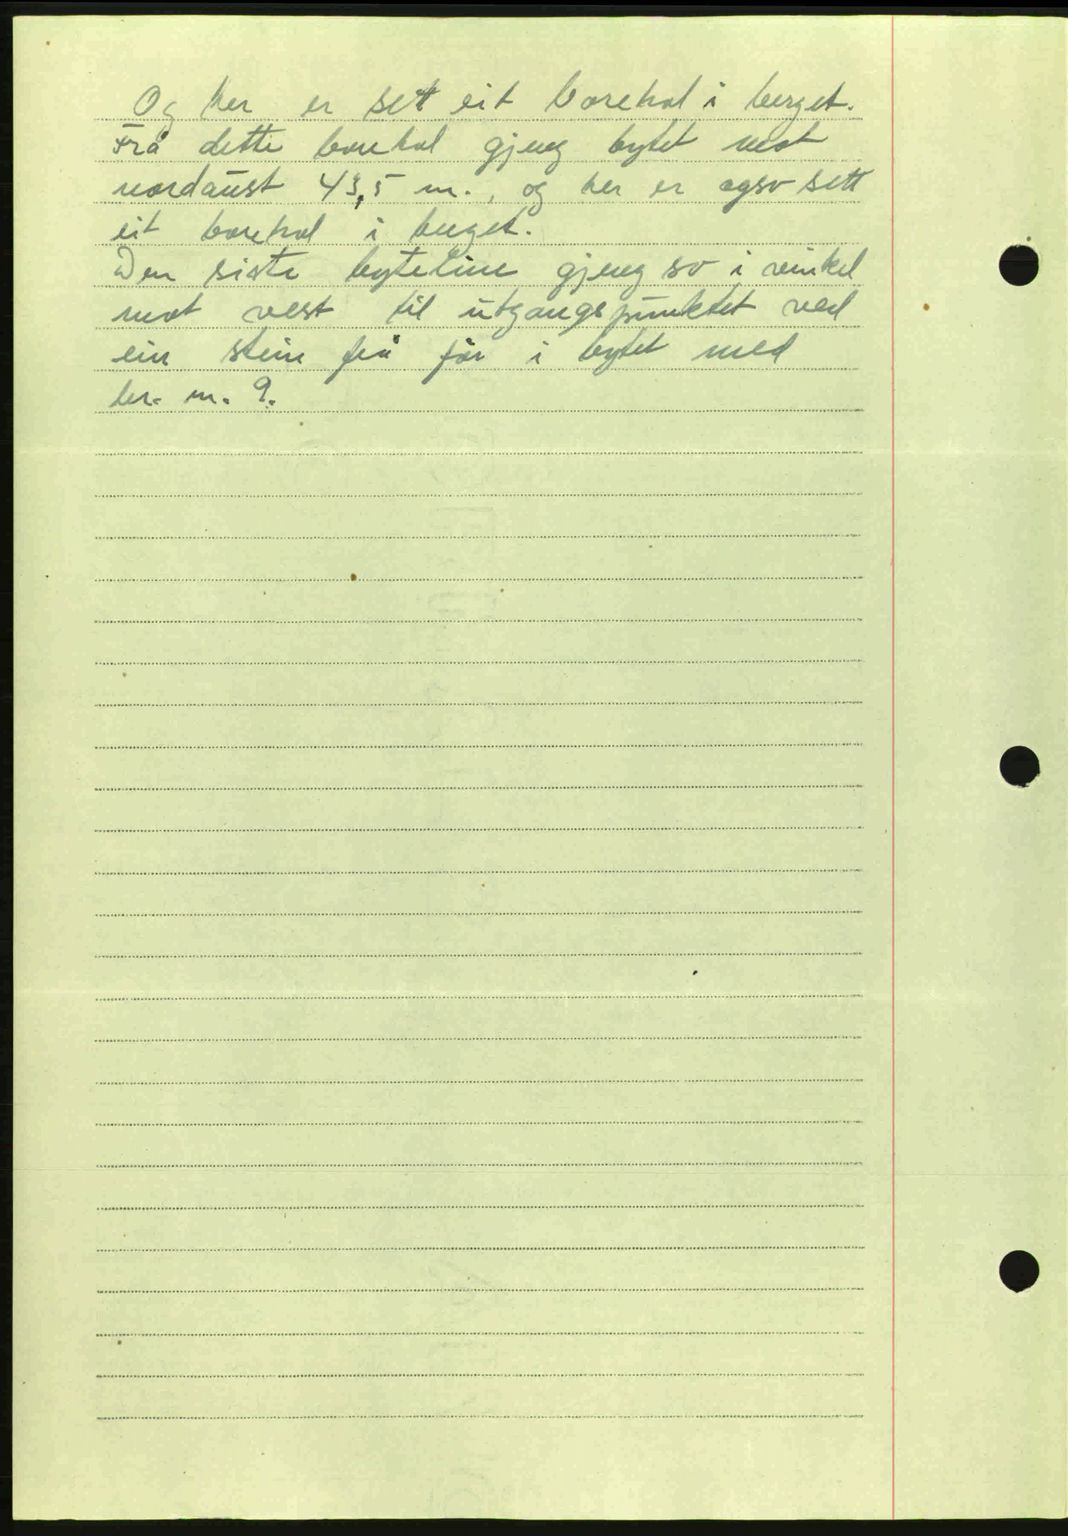 Og her er sett eit borehol i berget.
Frå dette borehol gjeng bytet mot
nordaust 43,5 m., og her er ogso sett
eit borehol i berget.
Den siste byteline gjeng so i vinkel
mot vest til utgangspunktet ved
ein stein frå før i bytet med
br. nr. 9.